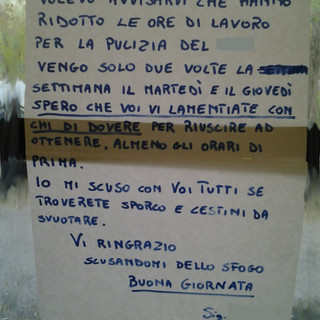 VOLEVO AVVISARVI CHE HANNO
RIDOTTO LE ORE DI LAVORO
PER LA PULIZIA DEL
VENGO SOLO DUE VOLTE LA
SETTIMANA IL MARTEDÌ E IL GIOVEDÌ
SPERO CHE VOI VI LAMENTIATE CON
CHI DI DOVERE PER RIUSCIRE AD
OTTENERE, ALMENO GLI ORARI DI
PRIMA.
IO MI SCUSO CON VOI TUTTI SE
TROVERETE SPORCO E CESTINI DA
SVUOTARE.
VI RINGRAZIO
SCUSANDOMI DELLO SFOGO
BUONA GIORNATA
Sig.